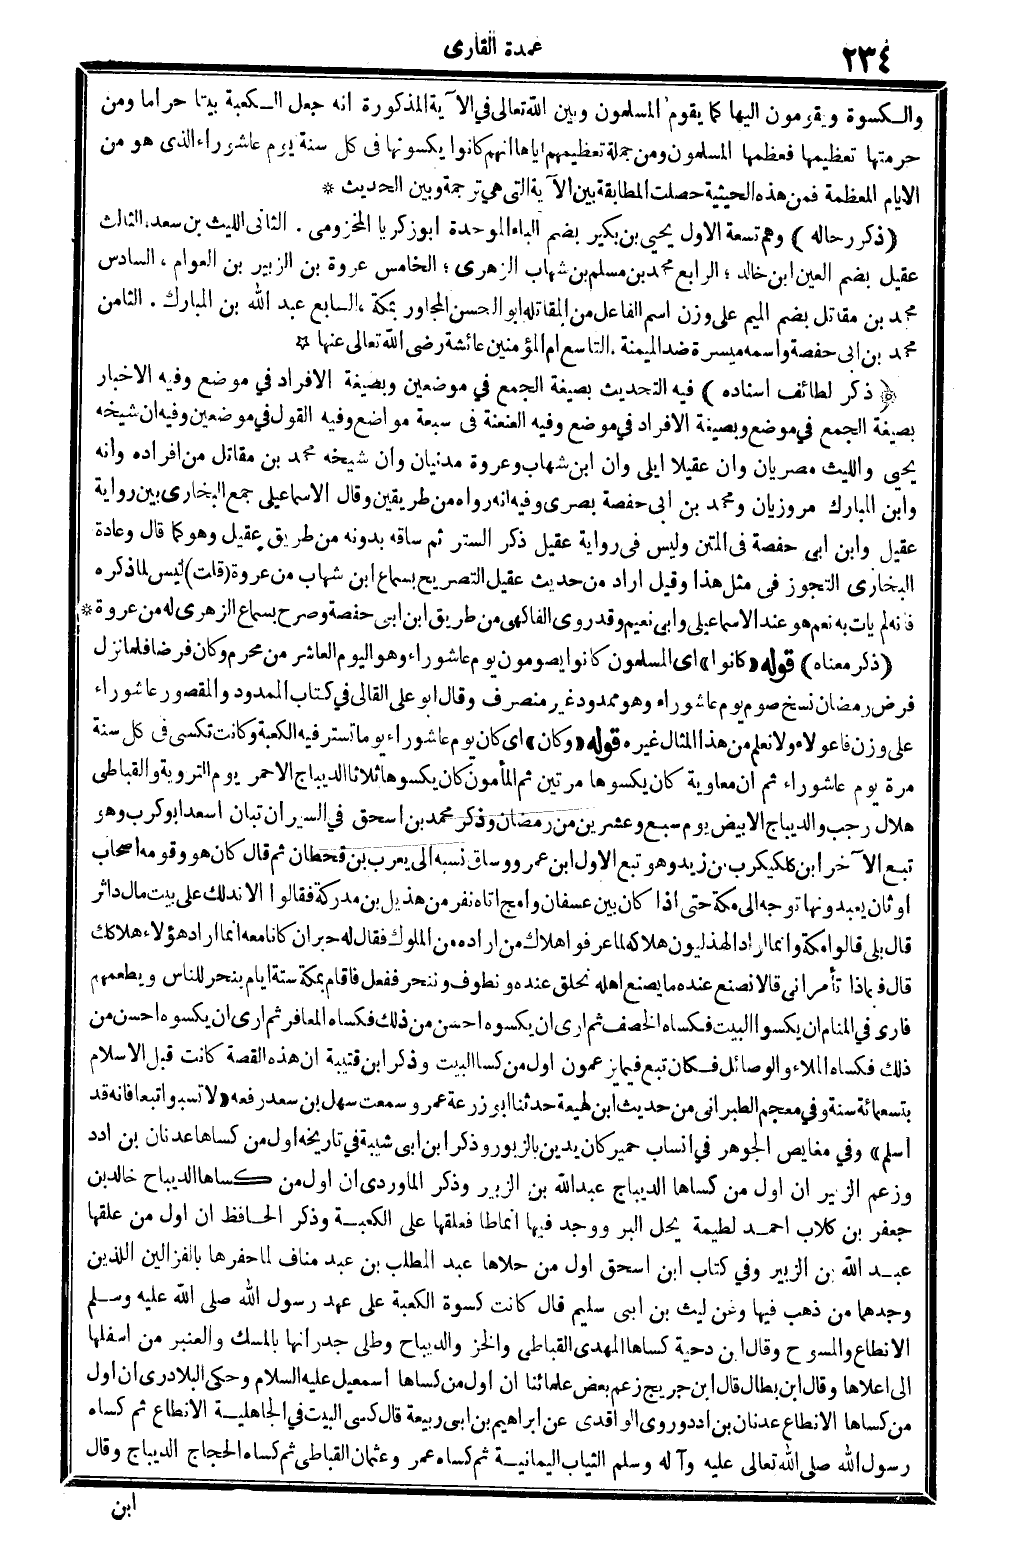 ٢٣٤
عمدة القارى
والكسوة ويقومون اليها كما يقوم المسلمون وبين الله تعالى في الآية المذكورة انه جعل الكعبة بيتا حراما ومن
حرمتها تعظيمها فعظمها المسلمون ومن جملة تعظيمهم اياها انهم كانوا يكسونها فى كل سنة يوم عاشوراء الذى هو من
الايام المعظمة فمن هذه الحيثية حصلت المطابقة بين الآية التى هي ترجمة وبين الحديث *
(ذكر رجاله) وهم تسعة الاول يحيى بن بكير بضم الباء الموحدة ابو زكريا المخزومى . الثانى الليث بن سعد . الثالث
عقيل بضم العين ابن خالد . الرابع محمد بن مسلم بن شهاب الزهرى . الخامس عروة بن الزبير بن العوام . السادس
محمد بن مقاتل بضم الميم على وزن اسم الفاعل من المقاتلة ابو الحسن المجاور بمكة . السابع عبد الله بن المبارك . الثامن
محمد بن ابى حفصة واسمه ميسرة ضد الميمنة . التاسع ام المؤمنين عائشة رضى الله تعالى عنها *
(ذكر لطائف اسناده) فيه التحديث بصيغة الجمع في موضعين وبصيغة الافراد في موضع وفيه الاخبار
بصيغة الجمع في موضع وبصيغة الافراد في موضع وفيه العنعنة فى سبعة مواضع وفيه القول في موضعين وفيه ان شيخه
يحيى والليث مصريان وان عقيلا ايلى وان ابن شهاب وعروة مدنيان وان شيخه محمد بن مقاتل من افراده وانه
وابن المبارك مروزيان ومحمد بن ابى حفصة بصرى وفيه انه رواه من طريقين وقال الاسماعيلى جمع البخارى بين رواية
عقيل وابن ابى حفصة فى المتن وليس فى رواية عقيل ذكر الستر ثم ساقه بدونه من طريق عقيل وهو كما قال وعادة
البخارى التجوز فى مثل هذا وقيل اراد من حديث عقيل التصريح بسماع ابن شهاب من عروة (قلت) ليس لما ذكره
فانه لم يات به نعم هو عند الاسماعيلى وابى نعيم وقد روى الفاكهى من طريق ابن ابى حفصة وصرح بسماع الزهرى له من عروة *
(ذكر معناه) قوله «كانوا» اى المسلمون كانوا يصومون يوم عاشوراء وهو اليوم العاشر من محرم وكان فرضا فلما نزل
فرض رمضان نسخ صوم يوم عاشوراء وهو ممدود غير منصرف وقال ابو على القالى في كتاب الممدود والمقصور عاشوراء
على وزن فاعولاء ولا نعلم من هذا المثال غيره قوله «وكان» اى كان يوم عاشوراء يوما تستر فيه الكعبة وكانت تكسى فى كل سنة
مرة يوم عاشوراء ثم ان معاوية كان يكسوها مرتين ثم المأمون كان يكسوها ثلاثا الديباج الاحمر يوم التروية والقباطى
هلال رجب والديباج الابيض يوم سبع وعشرين من رمضان وذكر محمد بن اسحق في السير ان تبان اسعد ابو كرب وهو
تبع الآخر ابن كلكيكرب بن زيد وهو تبع الاول ابن عمرو وساق نسبه الى يعرب بن قحطان ثم قال كان هو وقومه اصحاب
اوثان يعبدونها توجه الى مكة حتى اذا كان بين عسفان وامج اتاه نفر من هذيل بن مدركة فقالوا الا ندلك على بيت مال داثر
قال بلى قالوا مكة وانما اراد الهذليون هلاكه لما عرفوا هلاك من اراده من الملوك فقال له حبران كانا معه انما اراد هؤلاء هلاكك
قال فبماذا تأمرانى قالا تصنع عنده ما يصنع اهله تحلق عنده وتطوف وتنحر ففعل فاقام بمكة ستة ايام ينحر للناس ويطعمهم
فارى في المنام ان يكسو البيت فكساه الخصف ثم ارى ان يكسوه احسن من ذلك فكساه المعافر ثم ارى ان يكسوه احسن من
ذلك فكساه الملاء والوصائل فكان تبع فيما يزعمون اول من كسا البيت وذكر ابن قتيبة ان هذه القصة كانت قبل الاسلام
بتسعمائة سنة وفي معجم الطبرانى من حديث ابن لهيعة حدثنا ابو زرعة عمرو سمعت سهل بن سعد رفعه «لا تسبوا تبعا فانه قد
اسلم» وفي مغايص الجوهر في انساب حمير كان يدين بالزبور وذكر ابن ابى شيبة في تاريخه اول من كساها عدنان بن ادد
وزعم الزبير ان اول من كساها الديباج عبدالله بن الزبير وذكر الماوردى ان اول من كساها الديباح خالد بن
جعفر بن كلاب احمد لطيمة يحل البر ووجد فيها انماطا فعلقها على الكعبة وذكر الحافظ ان اول من علقها
عبد الله بن الزبير وفي كتاب ابن اسحق اول من حلاها عبد المطلب بن عبد مناف لما حفرها بالغزالين اللذين
وجدهما من ذهب فيها وعن ليث بن ابى سليم قال كانت كسوة الكعبة على عهد رسول الله صلى الله عليه وسلم
الانطاع والمسوح وقال ابن دحية كساها المهدى القباطى والخز والديباح وطلى جدرانها بالمسك والعنبر من اسفلها
الى اعلاها وقال ابن بطال قال ابن جريج زعم بعض علمائنا ان اول من كساها اسمعيل عليه السلام وحكى البلاذرى ان اول
من كساها الانطاع عدنان بن ادد وروى الواقدى عن ابراهيم بن ابى ربيعة قال كسى البيت في الجاهلية الانطاع ثم كساه
رسول الله صلى الله تعالى عليه وآله وسلم الثياب اليمانية ثم كساه عمر وعثمان القباطى ثم كساه الحجاج الديباج وقال
ابن